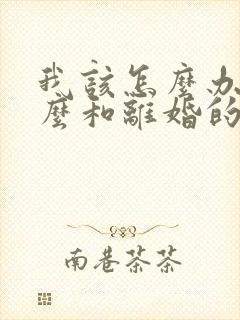 我該怎麼办
麼和離婚的
南巷茶茶